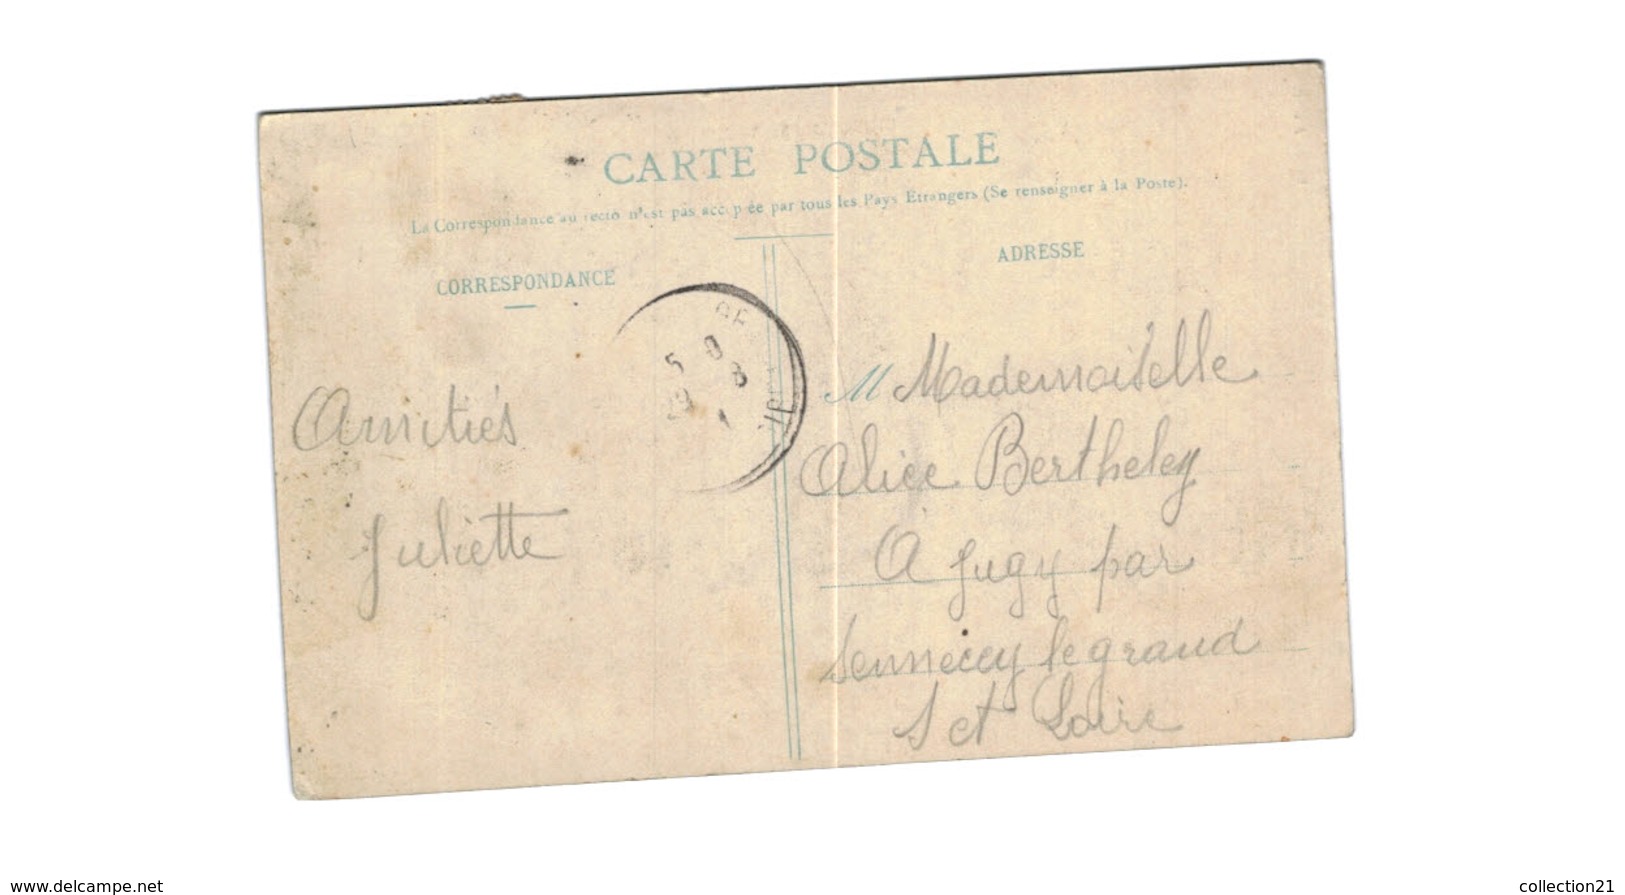 CARTE POSTALE
La Correspondance au recto n'est pas acceptée par tous les Pays Etrangers (Se renseigner à la Poste).
CORRESPONDANCE
Amitiés
Juliette
ADRESSE
M Mademoiselle
Alice Bertheley
A Jugy par
Sennecey le grand
S et Loire
www.delcampe.net
collection21